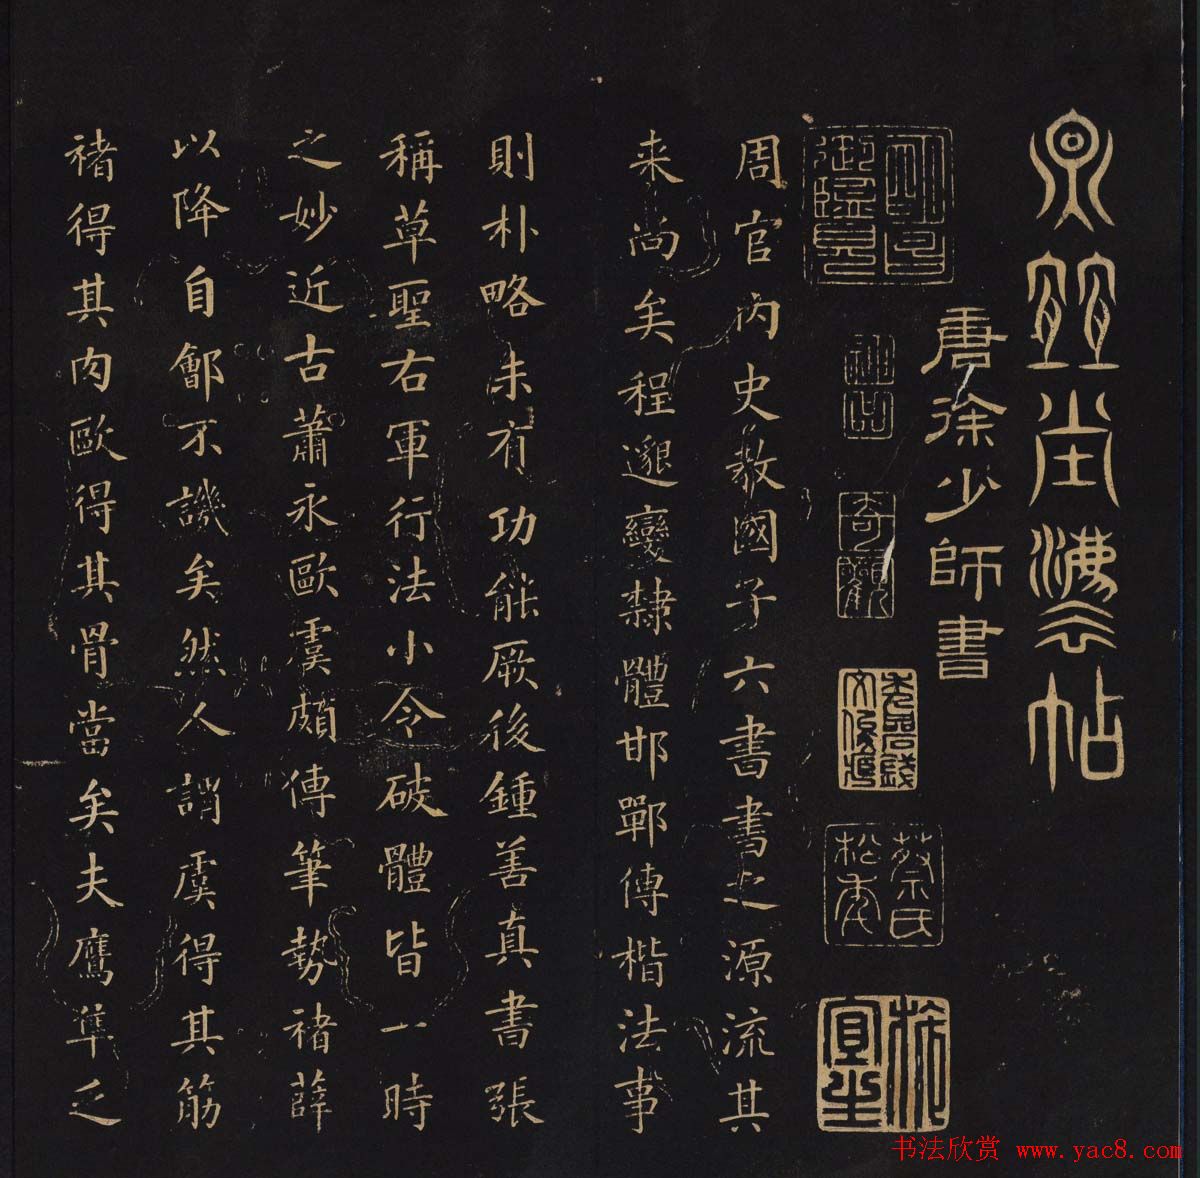 堂 帖
唐徐少師書
奇觀
蔡氏松年
周官内史教國子六書書之源流其
来尚矣程邈變隸體邯鄲傳楷法事
則朴略未有功能厥後鍾善真書張
稱草聖右軍行法小令破體皆一時
之妙近古蕭永歐虞頗傳筆勢褚薛
以降自鄶不譏矣然人謂虞得其筋
褚得其肉歐得其骨當矣夫鷹隼乏
书法欣赏 www.yac8.com